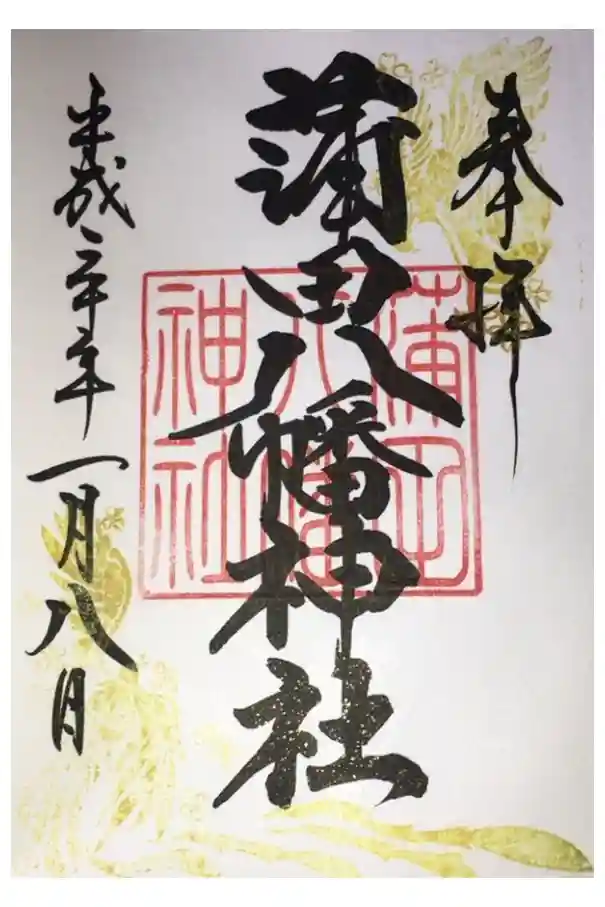 奉拝
蒲田八幡神社
平成三十年一月八日
蒲田
八幡
神社